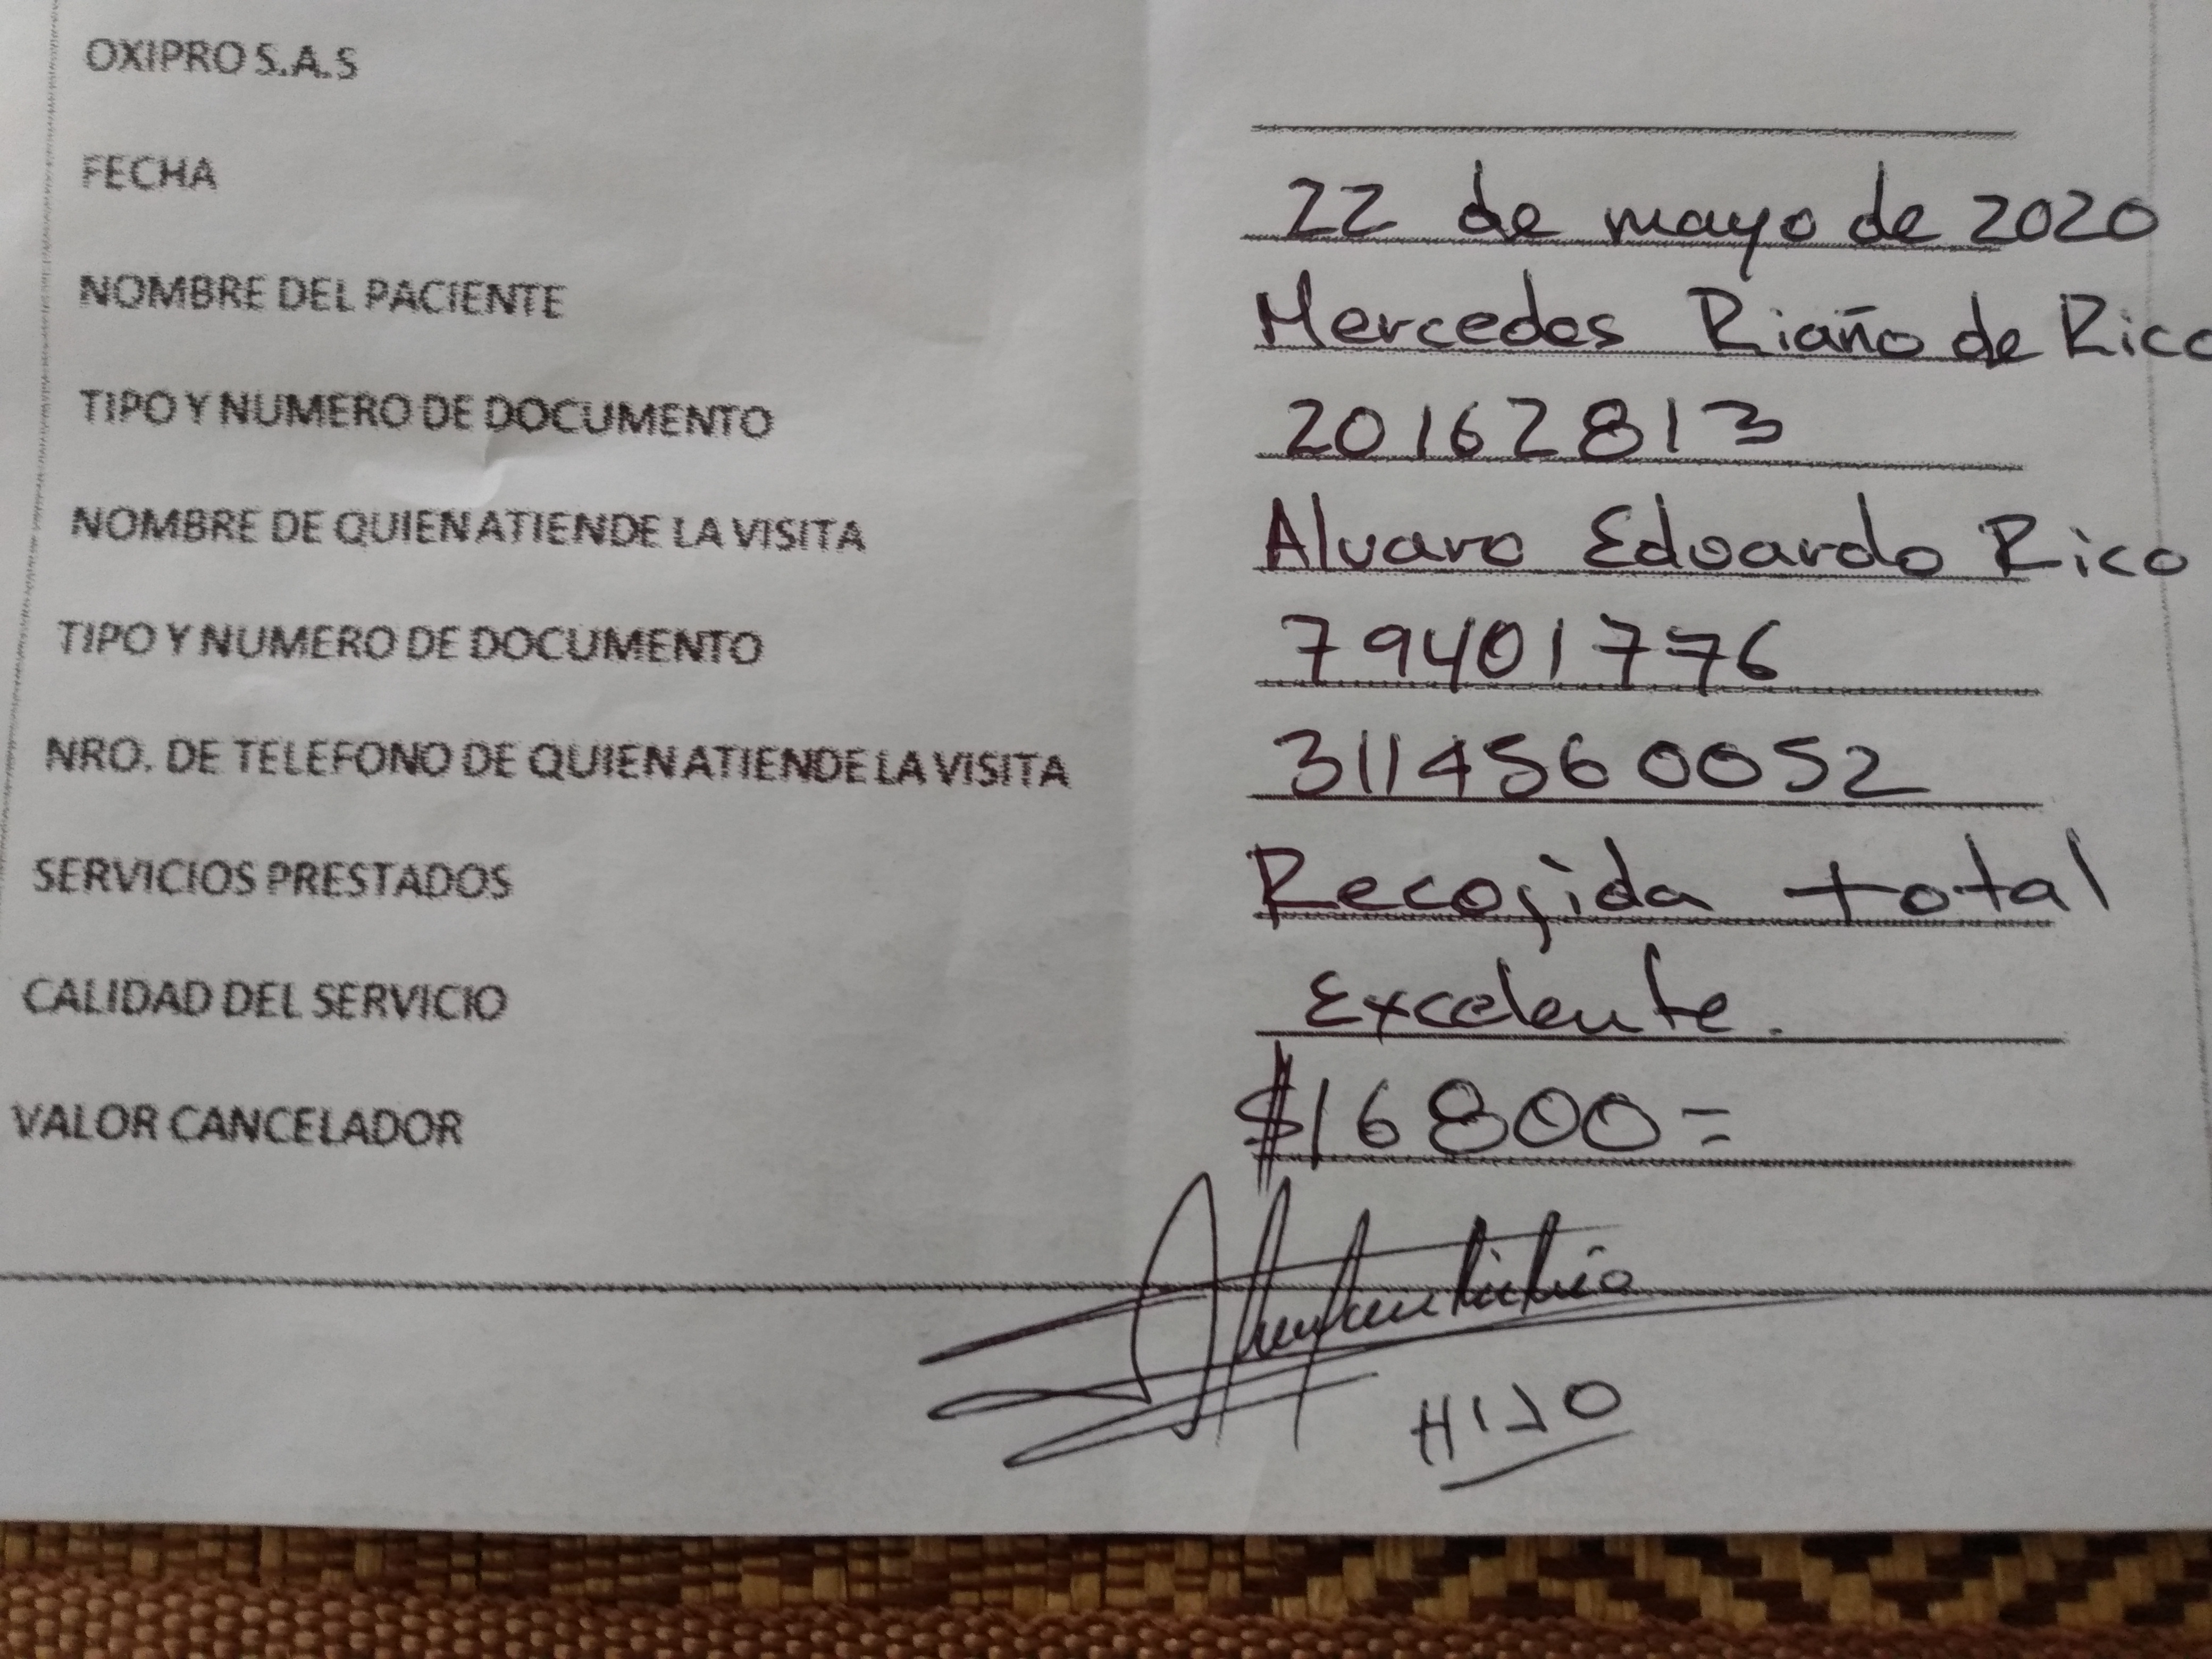 OXIPRO S.A.S
FECHA 22 de mayo de 2020
NOMBRE DEL PACIENTE Mercedes Riaño de Rico
TIPO Y NUMERO DE DOCUMENTO 20162813
NOMBRE DE QUIEN ATIENDE LA VISITA Alvaro Eduardo Rico
TIPO Y NUMERO DE DOCUMENTO 79401776
NRO. DE TELEFONO DE QUIEN ATIENDE LA VISITA 3114560052
SERVICIOS PRESTADOS Recojida total
CALIDAD DEL SERVICIO Excelente.
VALOR CANCELADOR $16800=
HIJO